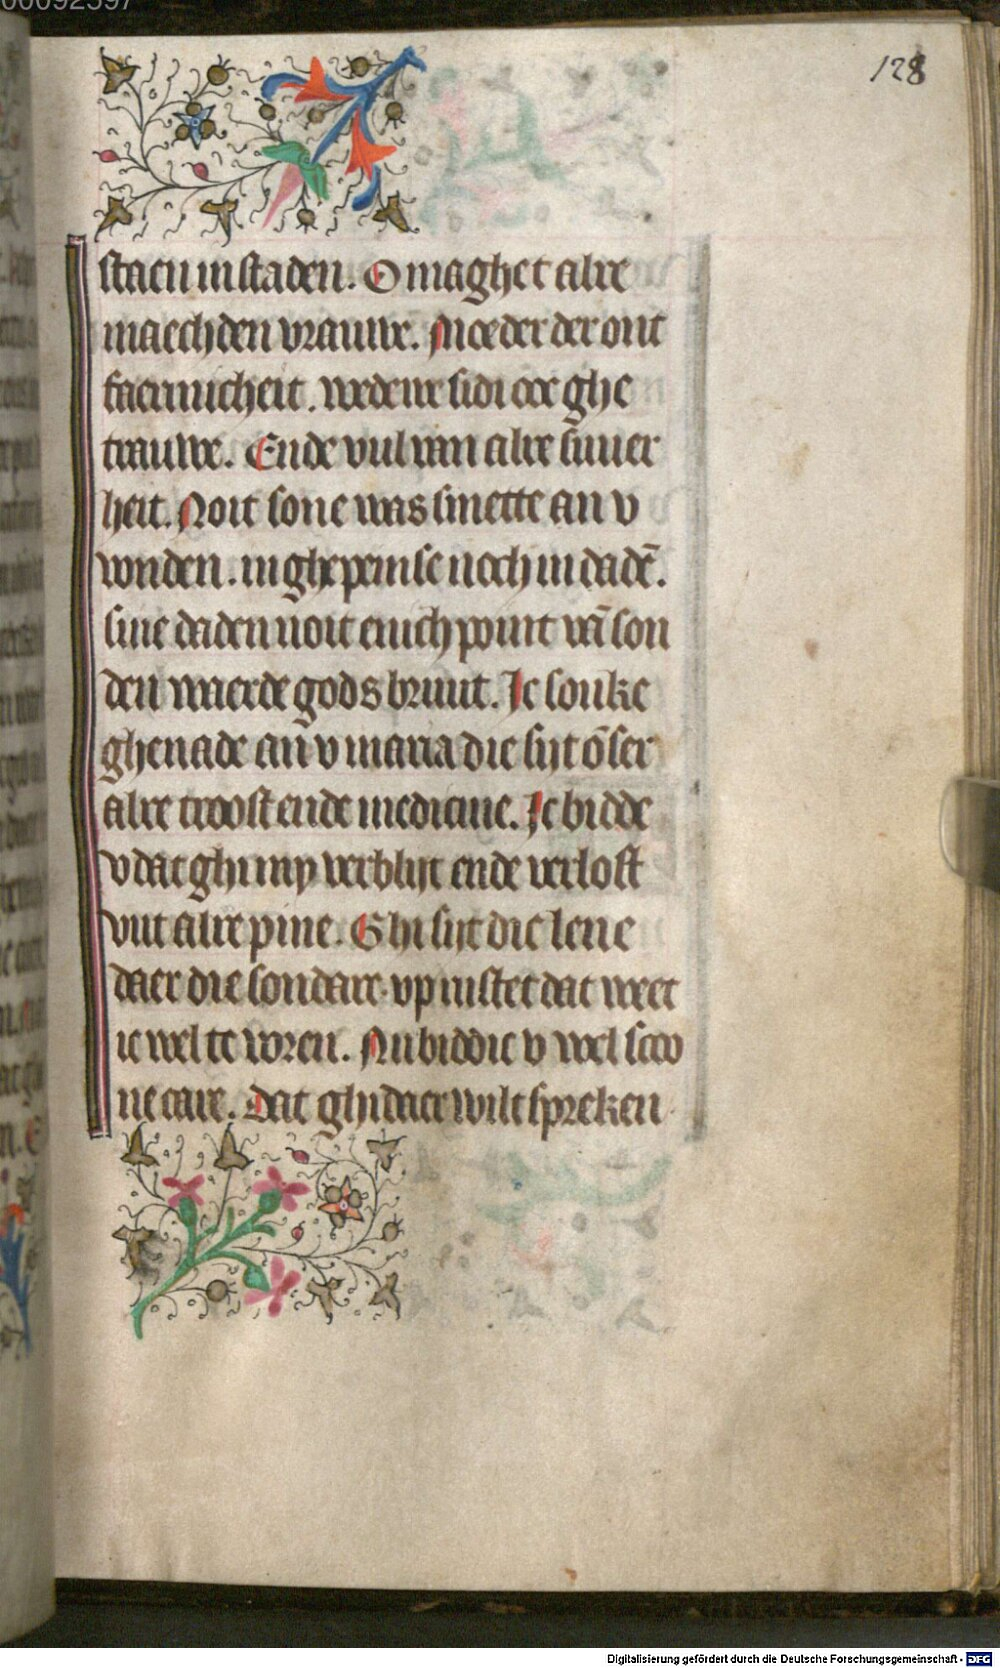 00092597
128
staen in staden. O maghet alre
maechden vrauwe. Moeder der ont
faermicheit. wedewe sidi oec ghe
trauwe. Ende vul van alre suuer
heit. Noit sone was smette an v
vonden. in ghepeinse noch in dadē.
sine daden noit enich point vā son
den waerde gods bruut. Ic souke
ghenade an v maria die sijt ōser
alre troost ende medicine. Ic bidde
v dat ghi my verblijt ende verlost
vut alre pine. Ghi sijt die lene
daer die sondare up rustet dat weet
ic wel te voren. Nu biddic v wel scoo
ne care. Dat ghi daer wilt spreken
Digitalisierung gefördert durch die Deutsche Forschungsgemeinschaft - DFG